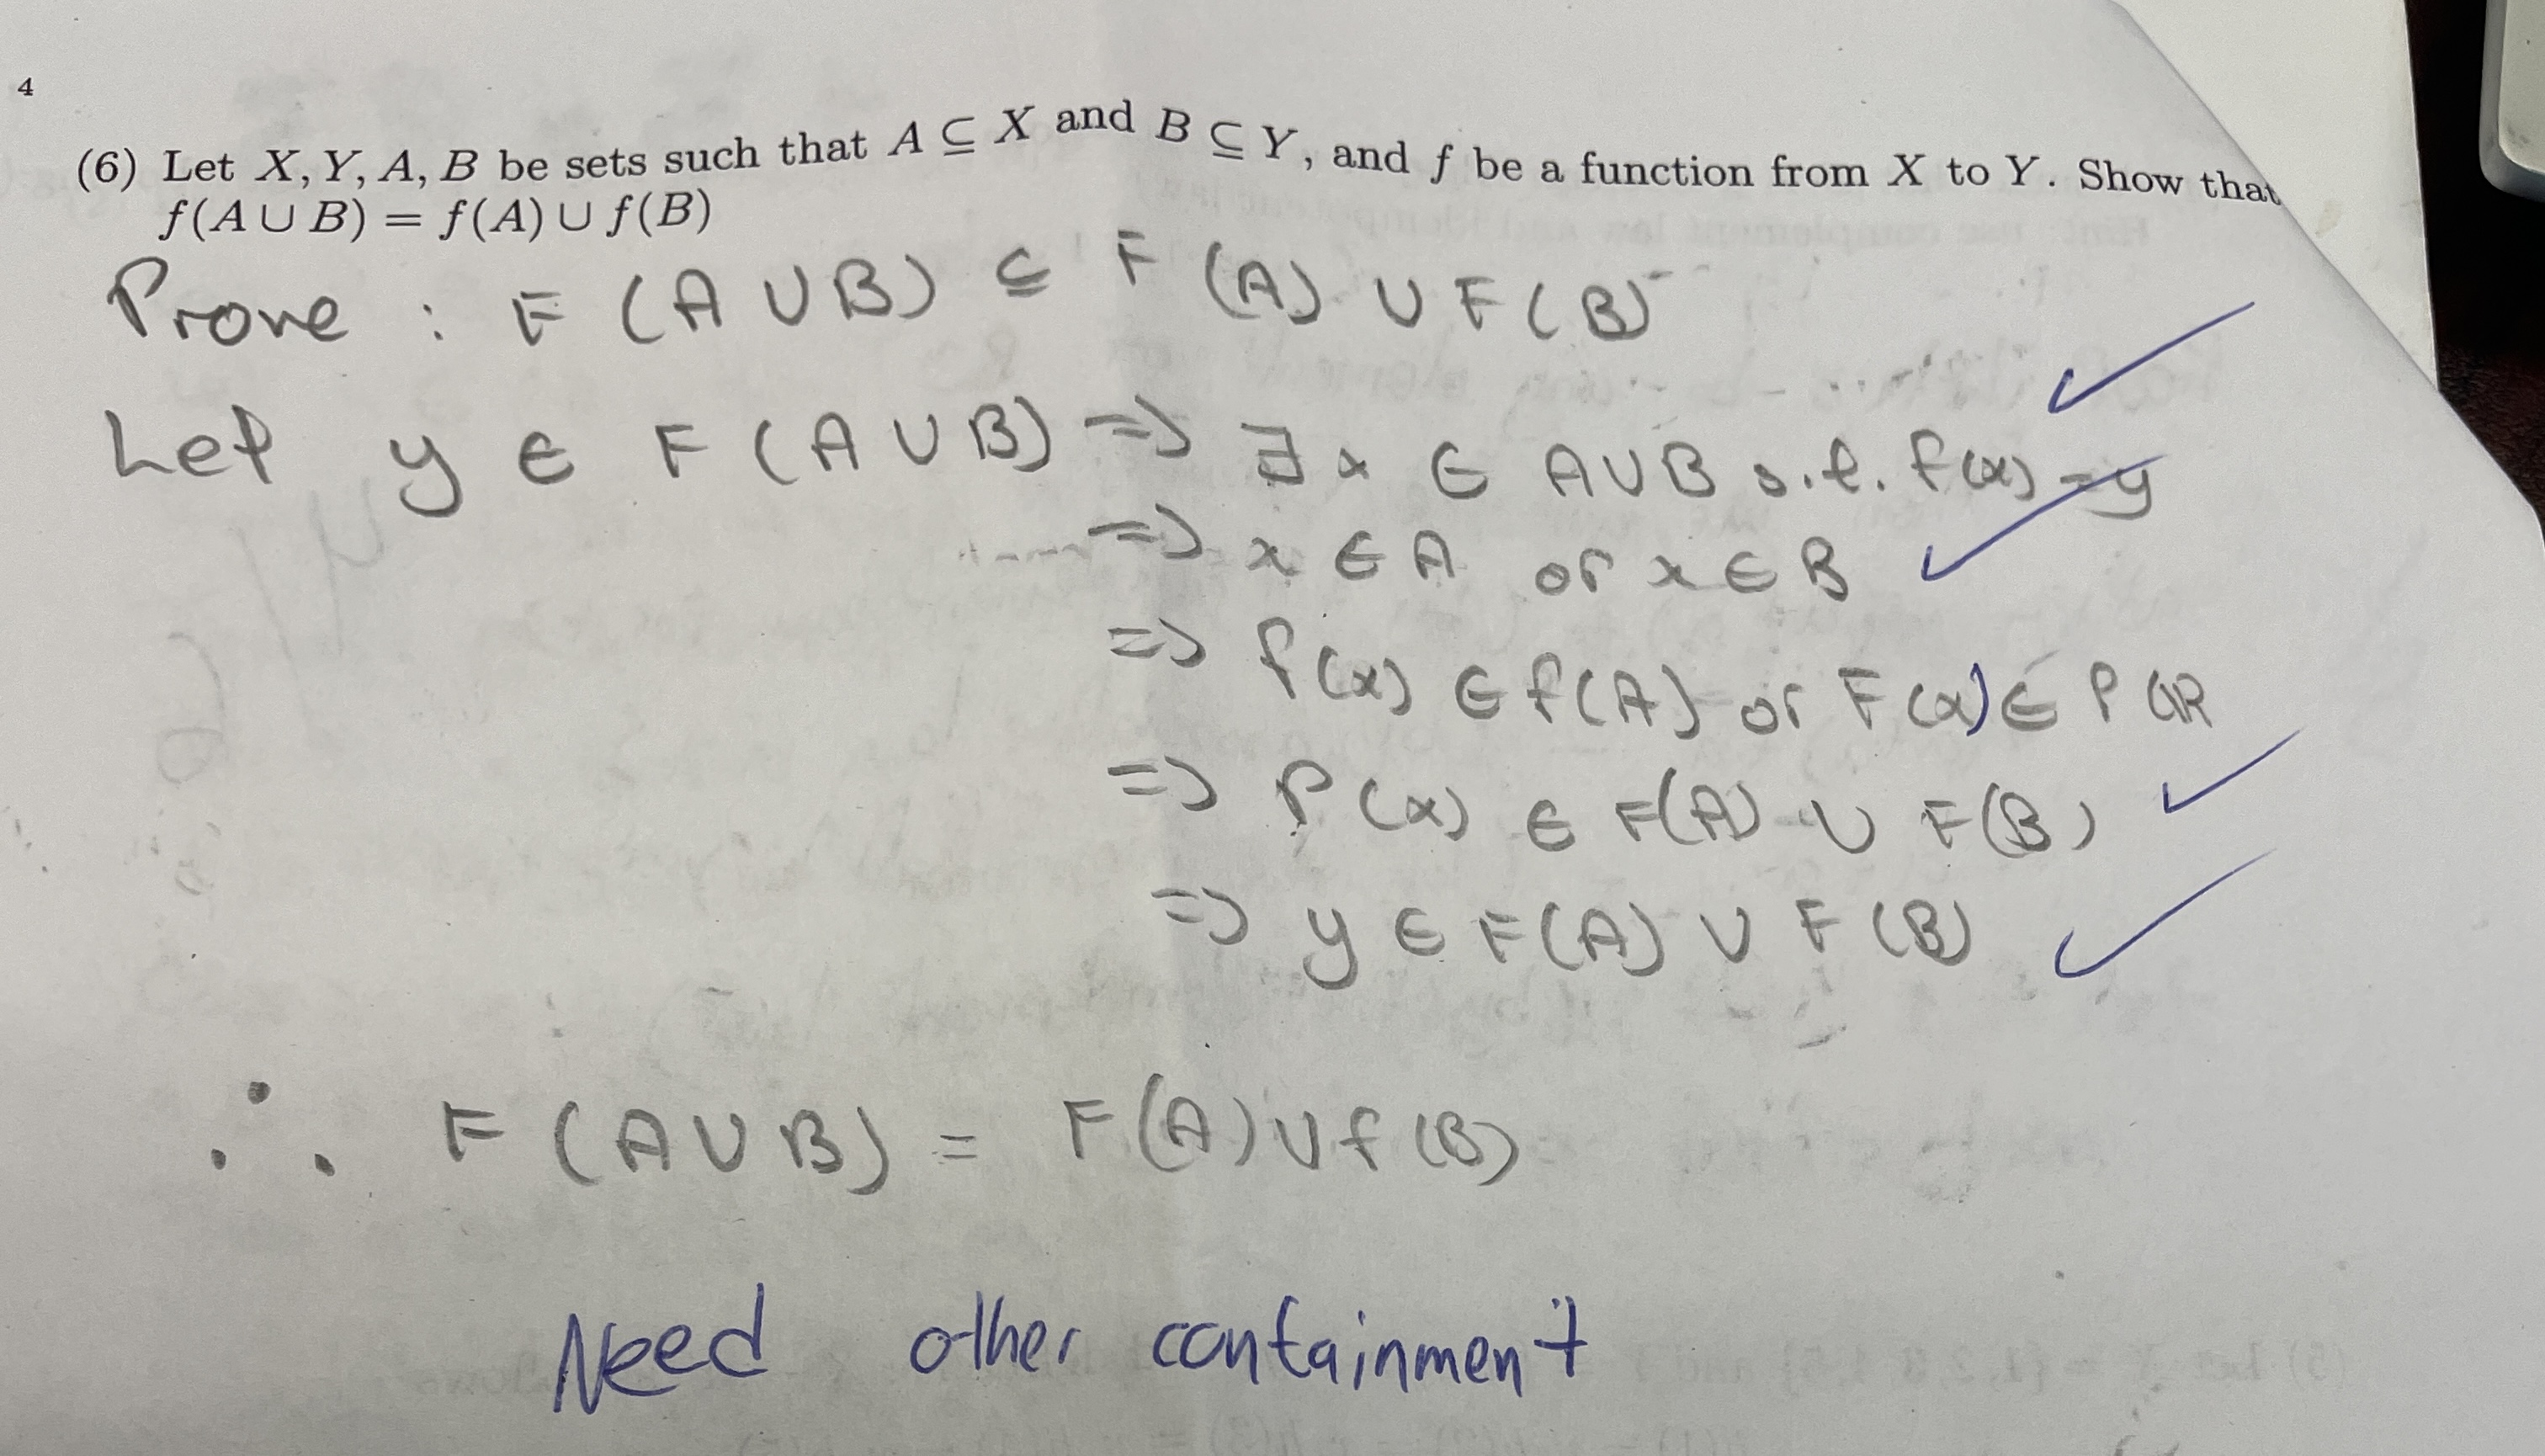 4
(6) Let X, Y, A, B be sets such that A ⊆ X and B ⊆ Y, and f be a function from X to Y. Show that
f(A ∪ B) = f(A) ∪ f(B)
Prove : F (A ∪ B) ⊆ F (A) ∪ F (B)
Let y ∈ F (A ∪ B) => ∃ x ∈ A ∪ B s.t. f(x) = y
=> x ∈ A or x ∈ B
=> f(x) ∈ f(A) or F(x) ∈
=> f(x) ∈ F(A) ∪ F(B)
=> y ∈ F(A) ∪ F(B)
∴ F (A ∪ B) = F(A) ∪ f(B)
Need other containment